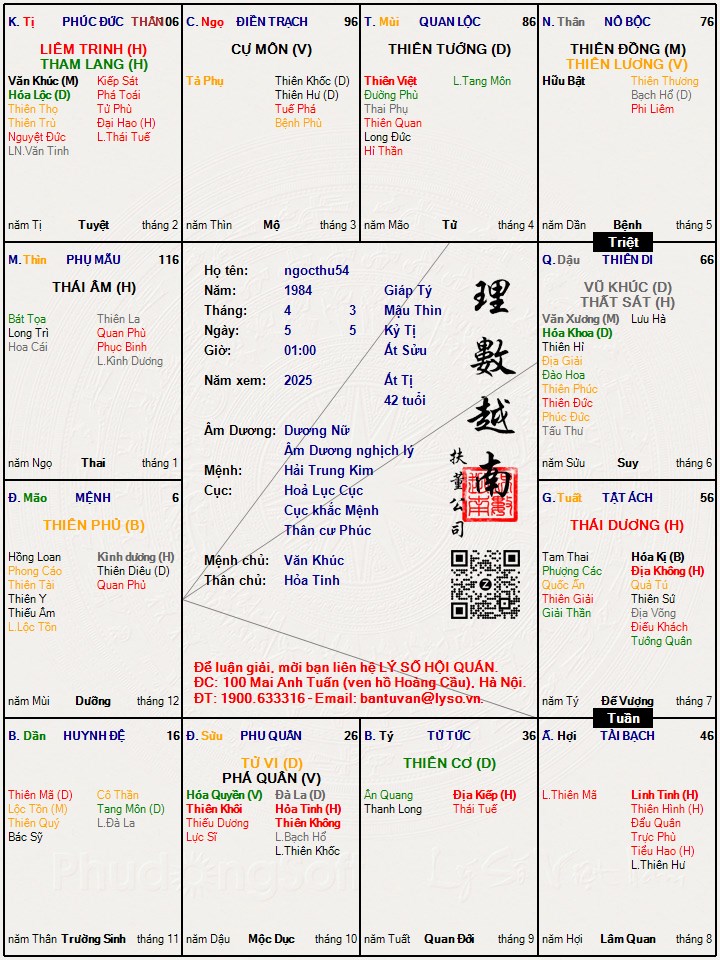 K. Tị PHÚC ĐỨC THÂN 106
LIÊM TRINH (H)
THAM LANG (H)
Văn Khúc (M) Kiếp Sát
Hóa Lộc (D) Phá Toái
Thiên Thọ Tử Phù
Thiên Trù Đại Hao (H)
Nguyệt Đức L.Thái Tuế
LN.Văn Tinh
năm Tị Tuyệt tháng 2
C. Ngọ ĐIỀN TRẠCH 96
CỰ MÔN (V)
Tả Phụ Thiên Khốc (D)
Thiên Hư (D)
Tuế Phá
Bệnh Phù
năm Thìn Mộ tháng 3
T. Mùi QUAN LỘC 86
THIÊN TƯỚNG (D)
Thiên Việt L.Tang Môn
Đường Phù
Thai Phụ
Thiên Quan
Long Đức
Hỉ Thần
năm Mão Tử tháng 4
N. Thân NÔ BỘC 76
THIÊN ĐỒNG (M)
THIÊN LƯƠNG (V)
Hữu Bật Thiên Thương
Bạch Hổ (D)
Phi Liêm
năm Dần Bệnh tháng 5
Triệt
M. Thìn PHỤ MẪU 116
THÁI ÂM (H)
Bát Tọa Thiên La
Long Trì Quan Phù
Hoa Cái Phục Binh
L.Kình Dương
năm Ngọ Thai tháng 1
Họ tên: ngocthu54
Năm: 1984 Giáp Tý
Tháng: 4 3 Mậu Thìn
Ngày: 5 5 Kỷ Tị
Giờ: 01:00 Ất Sửu
Năm xem: 2025 Ất Tị
42 tuổi
Âm Dương: Dương Nữ
Âm Dương nghịch lý
Mệnh: Hải Trung Kim
Cục: Hoả Lục Cục
Cục khắc Mệnh
Thân cư Phúc
Mệnh chủ: Văn Khúc
Thân chủ: Hỏa Tinh
理數越南
扶董公司
Để luận giải, mời bạn liên hệ LÝ SỐ HỘI QUÁN.
ĐC: 100 Mai Anh Tuấn (ven hồ Hoàng Cầu), Hà Nội.
ĐT: 1900.633316 - Email: bantuvan@lyso.vn.
Q. Dậu THIÊN DI 66
VŨ KHÚC (D)
THẤT SÁT (H)
Văn Xương (M) Lưu Hà
Hóa Khoa (D)
Thiên Hỉ
Địa Giải
Đào Hoa
Thiên Phúc
Thiên Đức
Phúc Đức
Tấu Thư
năm Sửu Suy tháng 6
Đ. Mão MỆNH 6
THIÊN PHỦ (B)
Hồng Loan Kình dương (H)
Phong Cáo Thiên Diêu (D)
Thiên Tài Quan Phủ
Thiên Y
Thiếu Âm
L.Lộc Tồn
năm Mùi Dưỡng tháng 12
G. Tuất TẬT ÁCH 56
THÁI DƯƠNG (H)
Tam Thai Hóa Kị (B)
Phượng Các Địa Không (H)
Quốc Ấn Quả Tú
Thiên Giải Thiên Sứ
Giải Thần Địa Võng
Điếu Khách
Tướng Quân
năm Tý Đế Vượng tháng 7
Tuần
B. Dần HUYNH ĐỆ 16
Thiên Mã (D) Cô Thần
Lộc Tồn (M) Tang Môn (D)
Thiên Quý L.Đà La
Bác Sỹ
năm Thân Trường Sinh tháng 11
Đ. Sửu PHU QUÂN 26
TỬ VI (D)
PHÁ QUÂN (V)
Hóa Quyền (V) Đà La (D)
Thiên Khôi Hỏa Tinh (H)
Thiếu Dương Thiên Không
Lực Sĩ L.Bạch Hổ
L.Thiên Khốc
năm Dậu Mộc Dục tháng 10
B. Tý TỬ TỨC 36
THIÊN CƠ (D)
Ân Quang Địa Kiếp (H)
Thanh Long Thái Tuế
năm Tuất Quan Đới tháng 9
Ấ. Hợi TÀI BẠCH 46
L.Thiên Mã Linh Tinh (H)
Thiên Hình (H)
Đẩu Quân
Trực Phù
Tiểu Hao (H)
L.Thiên Hư
năm Hợi Lâm Quan tháng 8